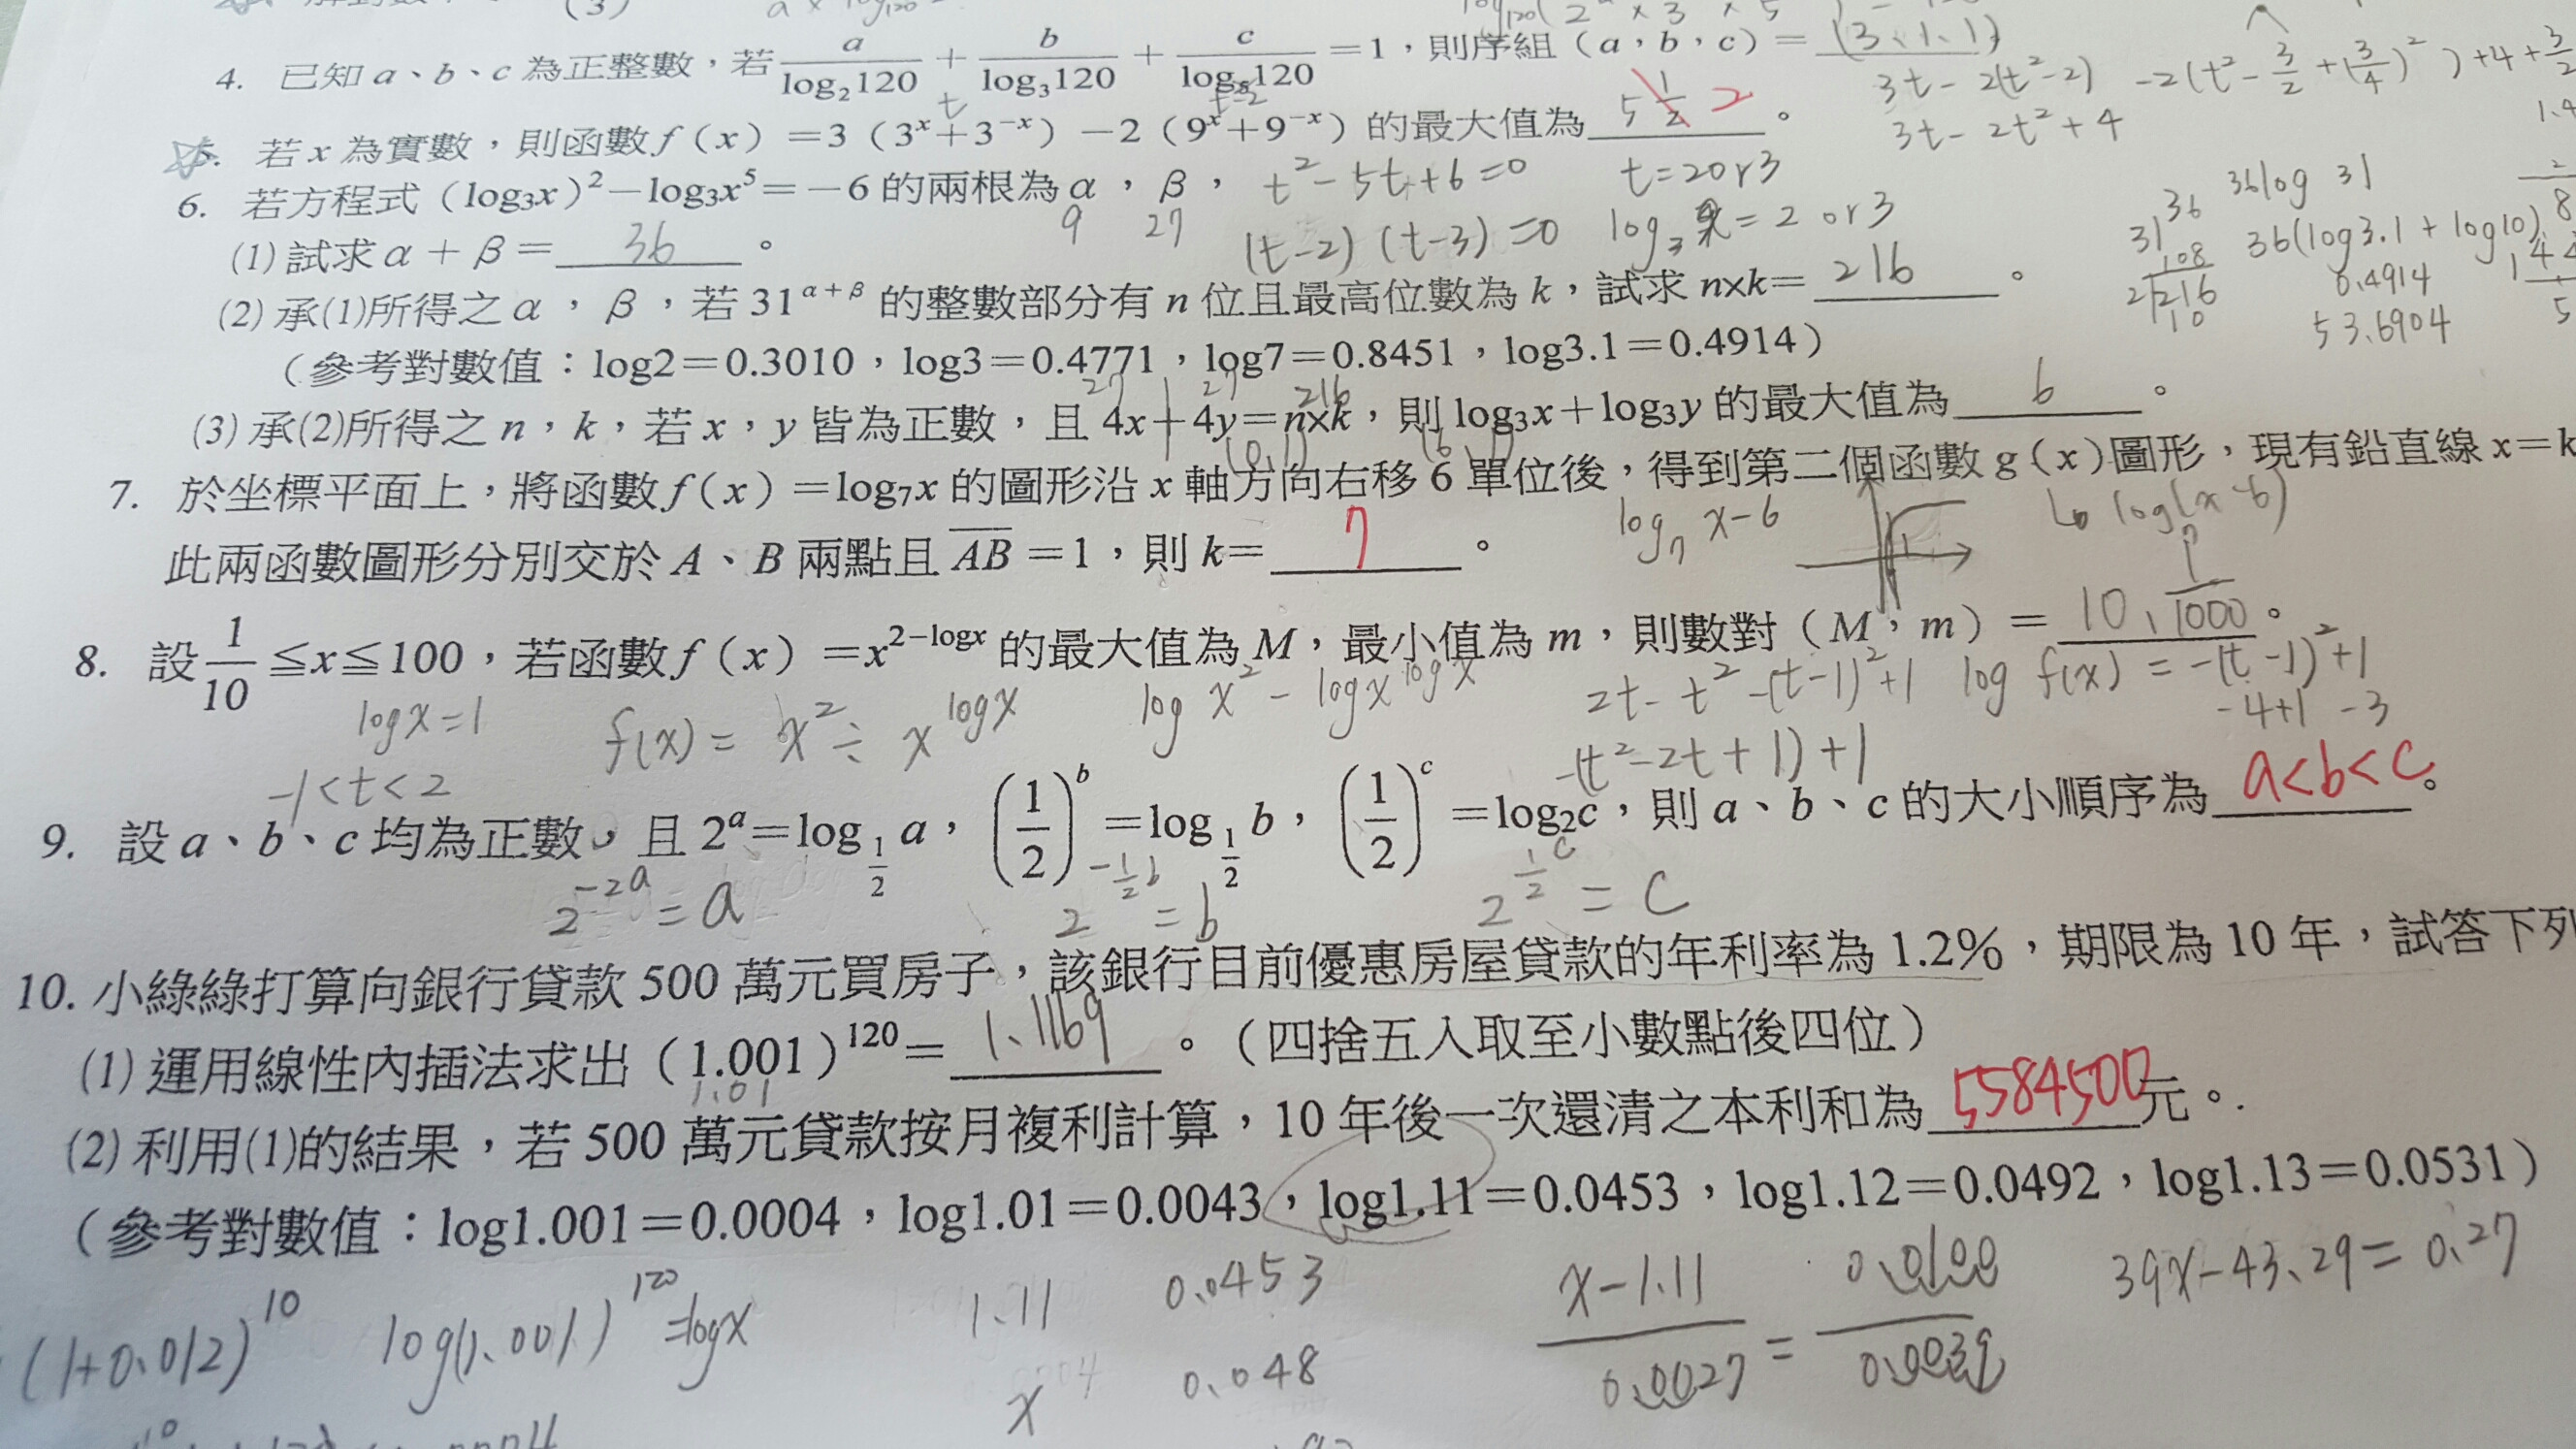 4. 已知 a、b、c 為正整數，若 a/log₂120 + b/log₃120 + c/log₅120 =1，則序組（a，b，c）= (3、1、1)
3t-2(t²-2) -2(t²-3/2+(3/4)²)+4+
3t-2t²+4
t t²-2
5. 若 x 為實數，則函數 f（x）=3（3ˣ+3⁻ˣ）-2（9ˣ+9⁻ˣ）的最大值為 5 1/2 2 。
6. 若方程式（log₃x）²-log₃x⁵=-6 的兩根為 α，β， t²-5t+6=0 t=2or3
9 27 (t-2)(t-3)=0 log₃x=2 or3
(1) 試求 α+β= 36 。
31³⁶ 36log 31
36(log3.1+log10)
108
216
0.4914
53.6904
(2) 承(1)所得之 α，β，若 31^(α+β) 的整數部分有 n 位且最高位數為 k，試求 n×k= 216 。
（參考對數值：log2=0.3010，log3=0.4771，log7=0.8451，log3.1=0.4914）
27 27 216
(3) 承(2)所得之 n，k，若 x，y 皆為正數，且 4x+4y=n×k，則 log₃x+log₃y 的最大值為 6 。
7. 於坐標平面上，將函數 f（x）=log₇x 的圖形沿 x 軸方向右移 6 單位後，得到第二個函數 g（x）圖形，現有鉛直線 x=k
log₇ x-6 log(x-6)
此兩函數圖形分別交於 A、B 兩點且 AB=1，則 k= 7 。
8. 設 1/10≦x≦100，若函數 f（x）=x^(2-logx) 的最大值為 M，最小值為 m，則數對（M，m）= 10、1/1000 。
logx=1 f(x)=x²÷x^logx log x²-logx^logx 2t-t² -(t-1)²+1 log f(x)=-(t-1)²+1
-4+1 -3
-1<t<2 -(t²-2t+1)+1
9. 設 a、b、c 均為正數，且 2ᵃ=log_(1/2) a，(1/2)ᵇ=log_(1/2) b，(1/2)ᶜ=log₂c，則 a、b、c 的大小順序為 a<b<c 。
2^(-2a)=a 2^(-1/2 b)=b 2^(1/2 c)=c
10. 小綠綠打算向銀行貸款 500 萬元買房子，該銀行目前優惠房屋貸款的年利率為 1.2%，期限為 10 年，試答下列
(1) 運用線性內插法求出（1.001）¹²⁰= 1.1169 。（四捨五入取至小數點後四位）
1.01
(2) 利用(1)的結果，若 500 萬元貸款按月複利計算，10 年後一次還清之本利和為 5584500 元。
（參考對數值：log1.001=0.0004，log1.01=0.0043，log1.11=0.0453，log1.12=0.0492，log1.13=0.0531）
(1+0.012)¹⁰ log(1.001)¹²⁰=logx 1.11 0.0453 39x-43.29=0.27
x 0.048
x-1.11/0.0027=0.0100/0.0039